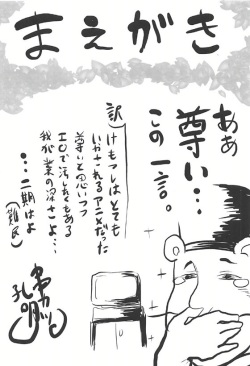 まえがき
ああ
尊い…
この一言。
(訳)
けもフレはとても
いやされるアニメだった
尊いと思いつつ
エロで汚したくもある
我が業の深さよ…
…二期はよ
(難民)